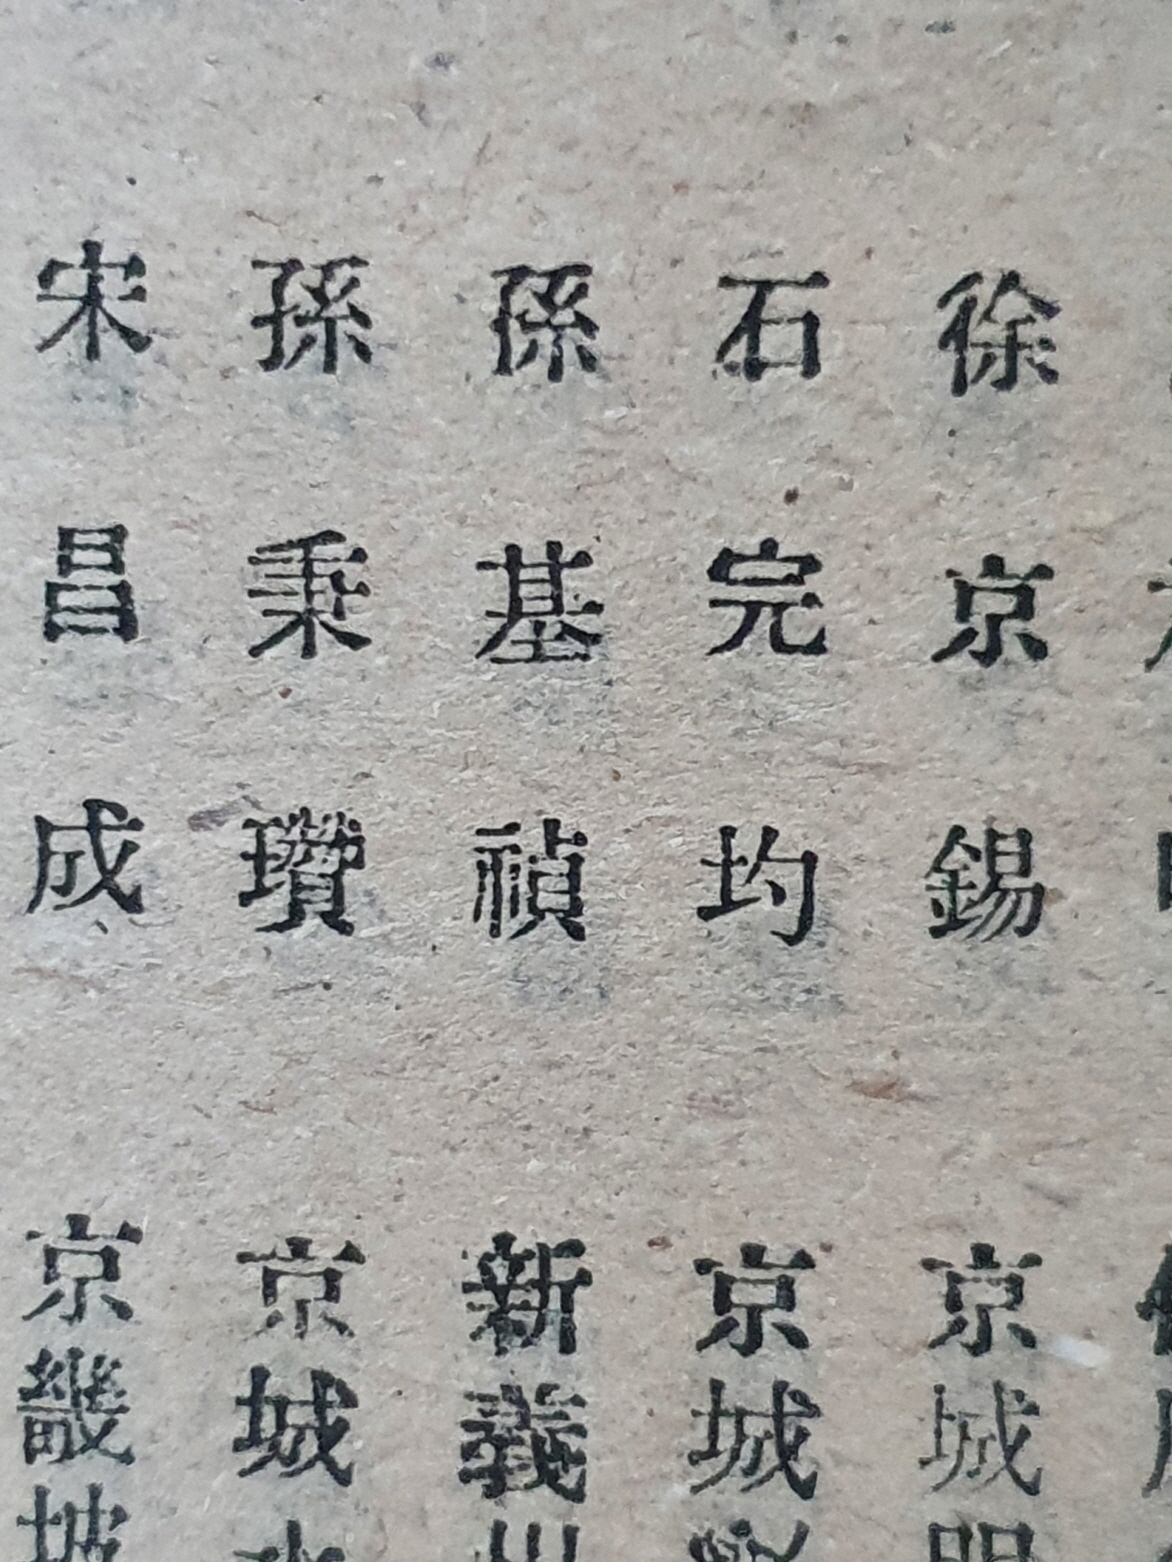 徐京錫 京城明
石完均 京城
孫基禎 新義州
孫秉瓚 京城
宋昌成 京畿坡